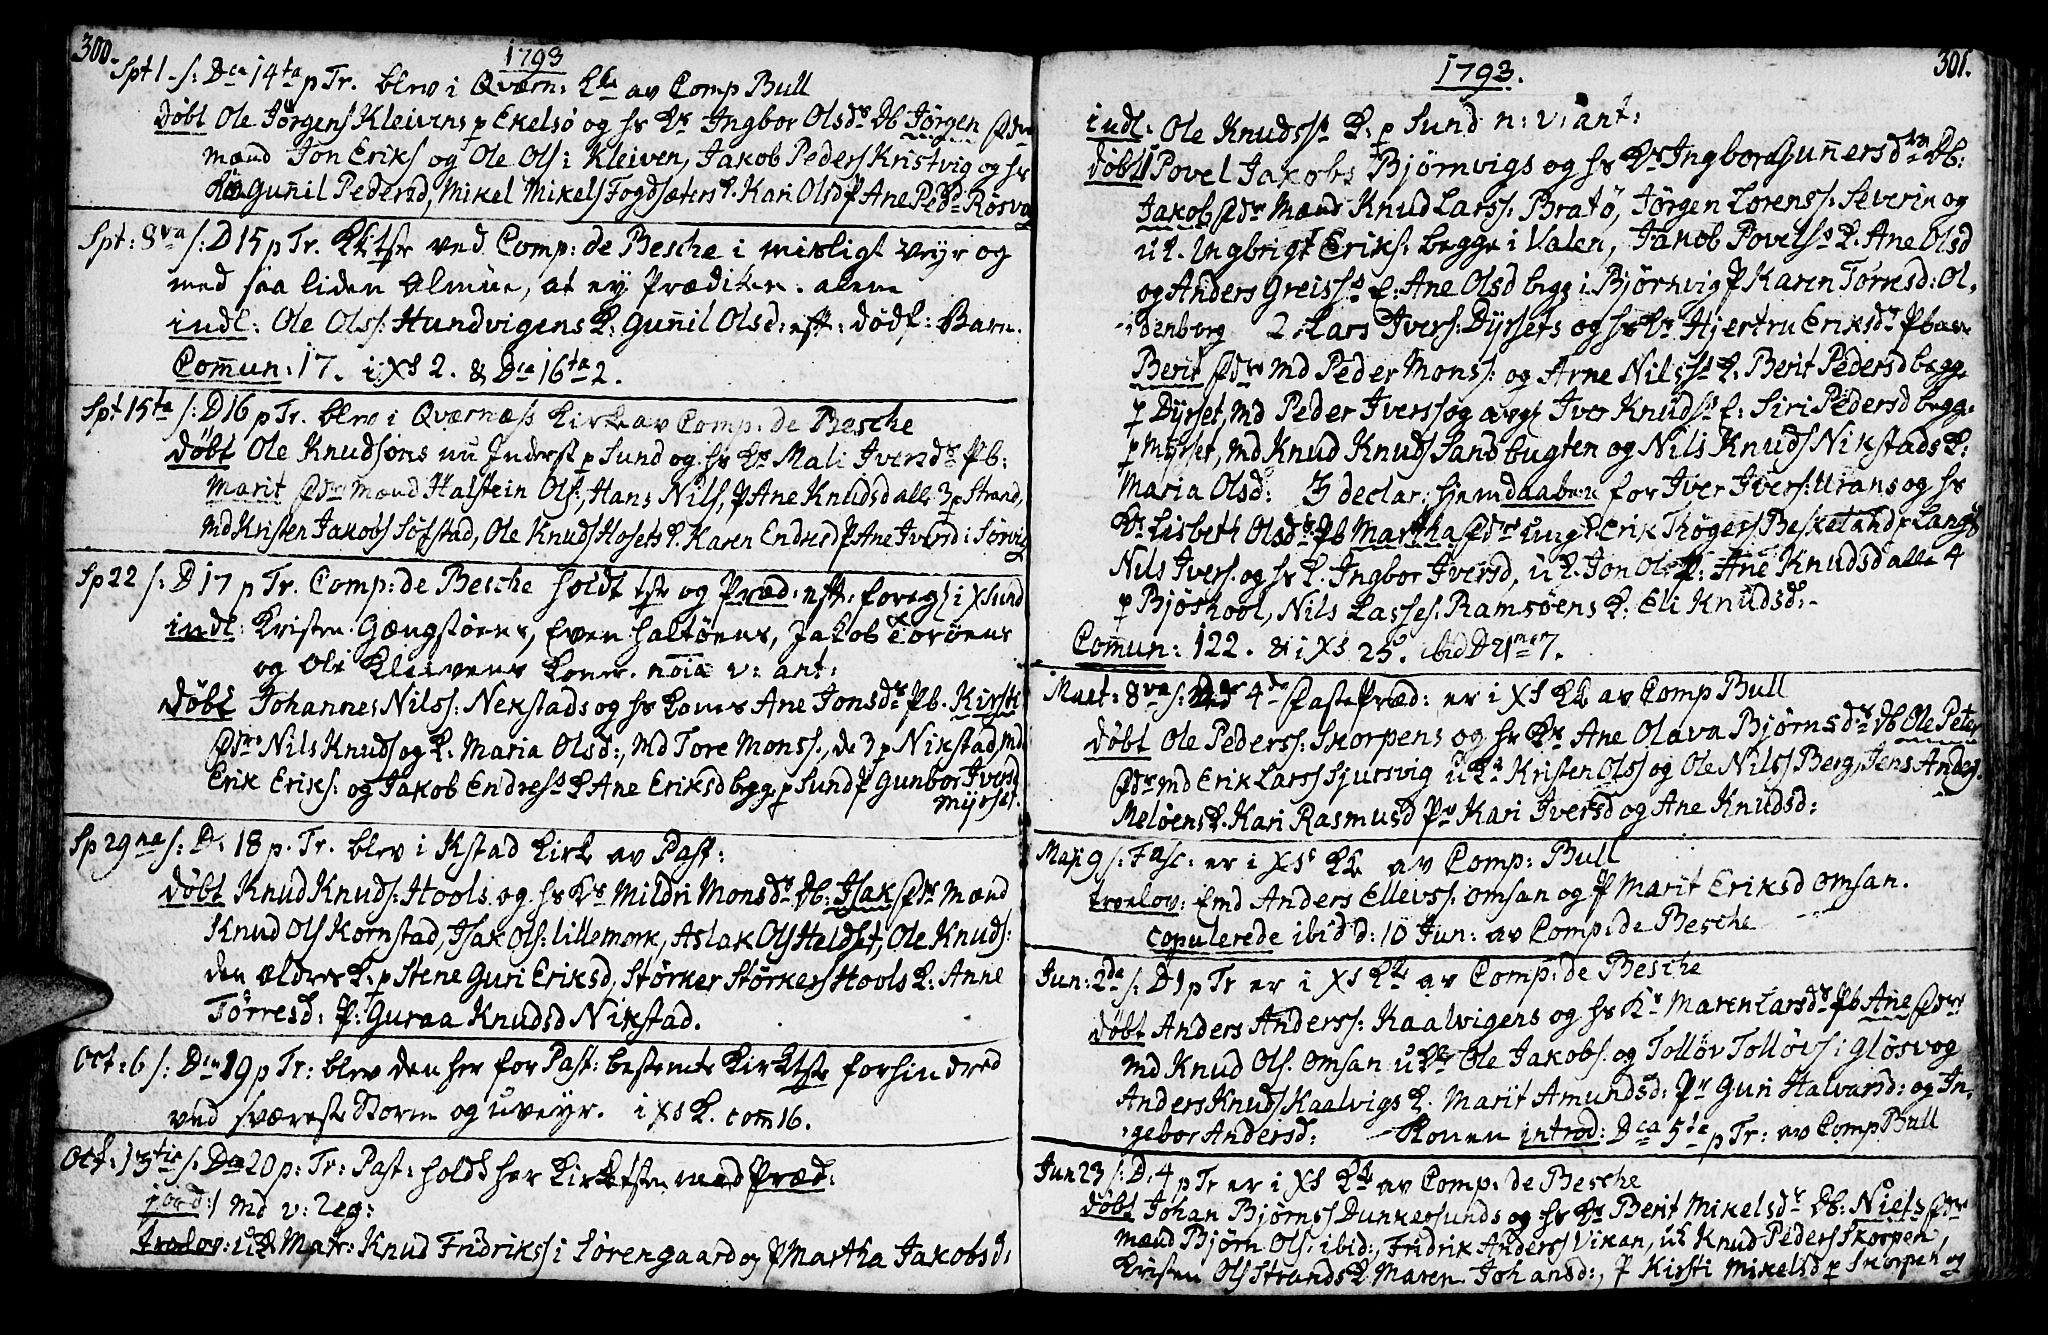 300.
1793
Spt 1 s: Dca 14ta p Tr. blev i Qværn: Kke av Comp Bull
døbt Ole Jørgens Kleivens p Ekelsø og hs Ks Ingbor Olsdr Db Jørgen
mænd Jon Eriks og Ole Ols: Kleiven, Jakob Peders Kristvig og hs
Gunil Pedersd, Mikel Mikels Fogdsæters K. Kari Olsd P Ane Pedd Røsvog
Spt: 8va s: D 15 p Tr. ved Comp: de Besche i misligt veyr og
med saa liden Almue, at ey Prædiken. alene
indl: Ole Ols: Hundvigens K: Gunnil Olsd: eft: dødf: Barn.
Comun: 17. i XS 2. & Dca 16ta 2.
Spt 15ta s: D 16 p Tr. blev i Qværnæss Kirke av Comp: de Besche
døbt Ole Knudsøns nu Inderst p Sund og hs Ks Mali Iversdr Pb:
Marit mænd Halstein Ols:, Hans Nils, P Ane Knudsd alle 3 p Strand,
Md Kristen Jakobs Søfstad, Ole Knuds Hosets K. Karen Endresd P Ane Iversd i Sørvig
Sp 22 s: D 17 p Tr. Comp: de Besche holdt tste og Præd: eft: foreg i X Sund
indl: Kristen Gængstøens, Even Haltøens, Jakob Torøens
og Ole Kleivens Koner. noia v: ant:
døbt Johannes Nilss: Nekstads og hs Kones Ane Jonsdr Pb. Kirsti
Nils Knuds og K. Maria Olsd:, Md Tore Monss:, de 3 p Nikstad, Md
Erik Eriks: og Jakob Endress K Ane Eriksd begge p Sund P Gunbor Iversd
Myrset.
Sp 29na s: D. 18 p. Tr. blev i Kstad Kirke av Past:
døbt Knud Knuds: Hools og hs Ks Mildri Monsdr Db: Isak mænd
Knud Ols Kornstad, Isak Ols: Lillemork, Aslak Ols Heldset, Ole Knuds:
den ældres K. p Stene Guri Eriksd, Størker Størkers Hools K: Anne
Tørresd: P: Guraa Knudsd Nikstad.
Oct: 6 s: Dca 19 p Tr: blev den her for Past: bestemte Kirketste forhindred
ved sværeste Storm og uveyr. i XS K. com 16.
Oct: 13tie s: Dca 20 p: Tr: Past: holdt her Kirketste med Præd:
jord: 1 Md v: Reg:
trolov: uK Matr: Knud Fridrikss i Sørengaard og P Martha Jakobsd:
301.
1793.
indl: Ole Knudss K: p Sund n: v: ant:
døbt 1 Povel Jakobs Bjørnvigs og hs Ks Ingborg Gunnersdtr Db:
Jakob mænd Knud Larss: Bratø, Jørgen Lorenss: Severin og
uK. Ingbrigt Eriks: begge i Valen, Jakob Povelss K. Ane Olsd
og Anders Greiss K: Ane Olsd begg i Bjørnvig P Karen Torresd: Ol-
-denborg 2. Lars Ivers: Dyrsets og hs Ks Hjertru Eriksdr Pbarn
Berit Md Peder Mons: og Arne Nilss K. Berit Pedersd begge
p Dyrset, Md Peder Iverss og Iver Knuds K: Siri Pedersd begg.
p Myrset, Md Knud Knuds Sandbugten og Nils Knuds Nikstads K:
Maria Olsd: 3 declar: hjemdaaben for Iver Ivers: Urans og hs
Ks Lisbeth Olsdr Pb Martha ungk Erik Thøgers Beskeland Langs
Nils Ivers. og hs K. Ingbor Iversd, uK. Jon Ols P: Ane Knudsd alle 4
p Bjøskool, Nils Lasses: Ramsøens K: Eli Knudsd:-
Comun: 122. & i XS 25. ibid D 21mo 7.
Mart: 8va s: Ved 4de FastePræd: er i XS Kk av Comp Bull
døbt Ole Peders: Skorpens og hs Ks Ane Olava Bjørnsdr Db Ole Peter
Md Erik Larss Sjursvig uK Kristen Olss og Ole Nilss Berg, Jens Anders
Meløens K. Kari Rasmusd Pr Kari Iversd og Ane Knudsd:
Maji 9 s: Fasc: er i XS Kk av Comp: Bull
trolov: Emd Anders Ellevs: Omsan og P Marit Eriksd Omsan.
copulerede ibid d: 10 Jun: av Comp: de Besche
Jun: 2da s: D 1 p Tr er i XS Kk av Comp: de Besche
døbt Anders Anderss: Kaalvigens og hs Ks Maren Larsdr Pb Ane
Md Knud Ols. Omsan uK Ole Jakobs: og Tolløv Tolløvs i Gløsvog
Anders Knuds Kaalvigs K. Marit Amundsd: Pr Guri Halvarsd: og In-
-gebor Andersd: Konen introd: Dca 5ta p Tr: av Comp Bull
Jun 23 s: D. 4 p Tr er i XS Kk av Comp: de Besche
døbt Johan Bjørnss Dunkersunds og hs Ks Berit Mikelsdr Db: Niels
mænd Bjørn Ols: ibid:, Fridrik Anders Vikan, uK Knud Peders Skorpen,
Kristen Ols Strands K Maren Johansd:, P Kirsti Mikelsd p Skorpen og